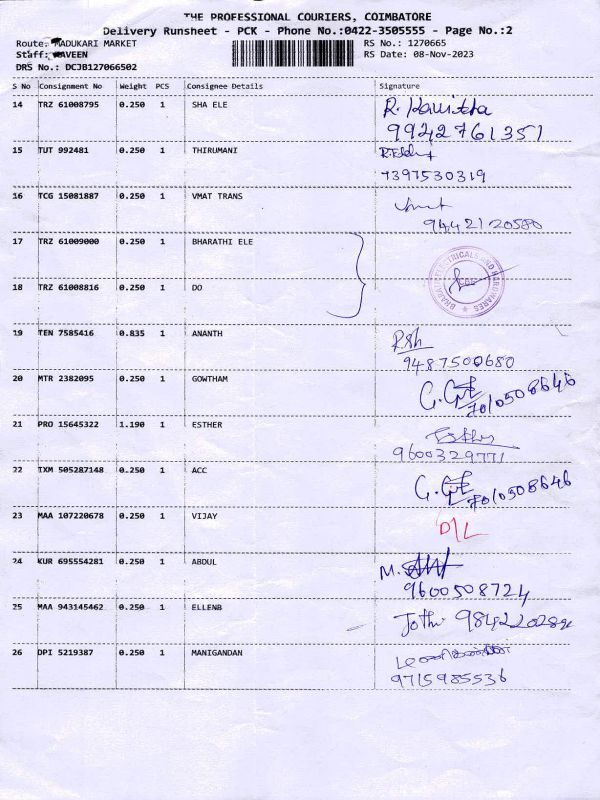 THE PROFESSIONAL COURIERS, COIMBATORE
Delivery Runsheet - PCK - Phone No.:0422-3505555 - Page No.:2
Route: MADUKARI MARKET RS No.: 1270665
Staff: NAVEEN RS Date: 08-Nov-2023
DRS No.: DCJB127066502
S No Consignment No Weight PCS Consignee Details Signature
14 TRZ 61008795 0.250 1 SHA ELE R. Kavitha
9942761351
15 TUT 992481 0.250 1 THIRUMANI
7397530319
16 TCG 15081887 0.250 1 VMAT TRANS
9442120580
17 TRZ 61009000 0.250 1 BHARATHI ELE
18 TRZ 61008816 0.250 1 DO
19 TEN 7585416 0.835 1 ANANTH
9487500680
20 MTR 2382095 0.250 1 GOWTHAM
7010508646
21 PRO 15645322 1.190 1 ESTHER Esther
9600329771
22 TXM 505287148 0.250 1 ACC
7010508646
23 MAA 107220678 0.250 1 VIJAY D/L
24 KUR 695554281 0.250 1 ABDUL M.
9600508724
25 MAA 943145462 0.250 1 ELLENB Jothi
26 DPI 5219387 0.250 1 MANIGANDAN
9715985536